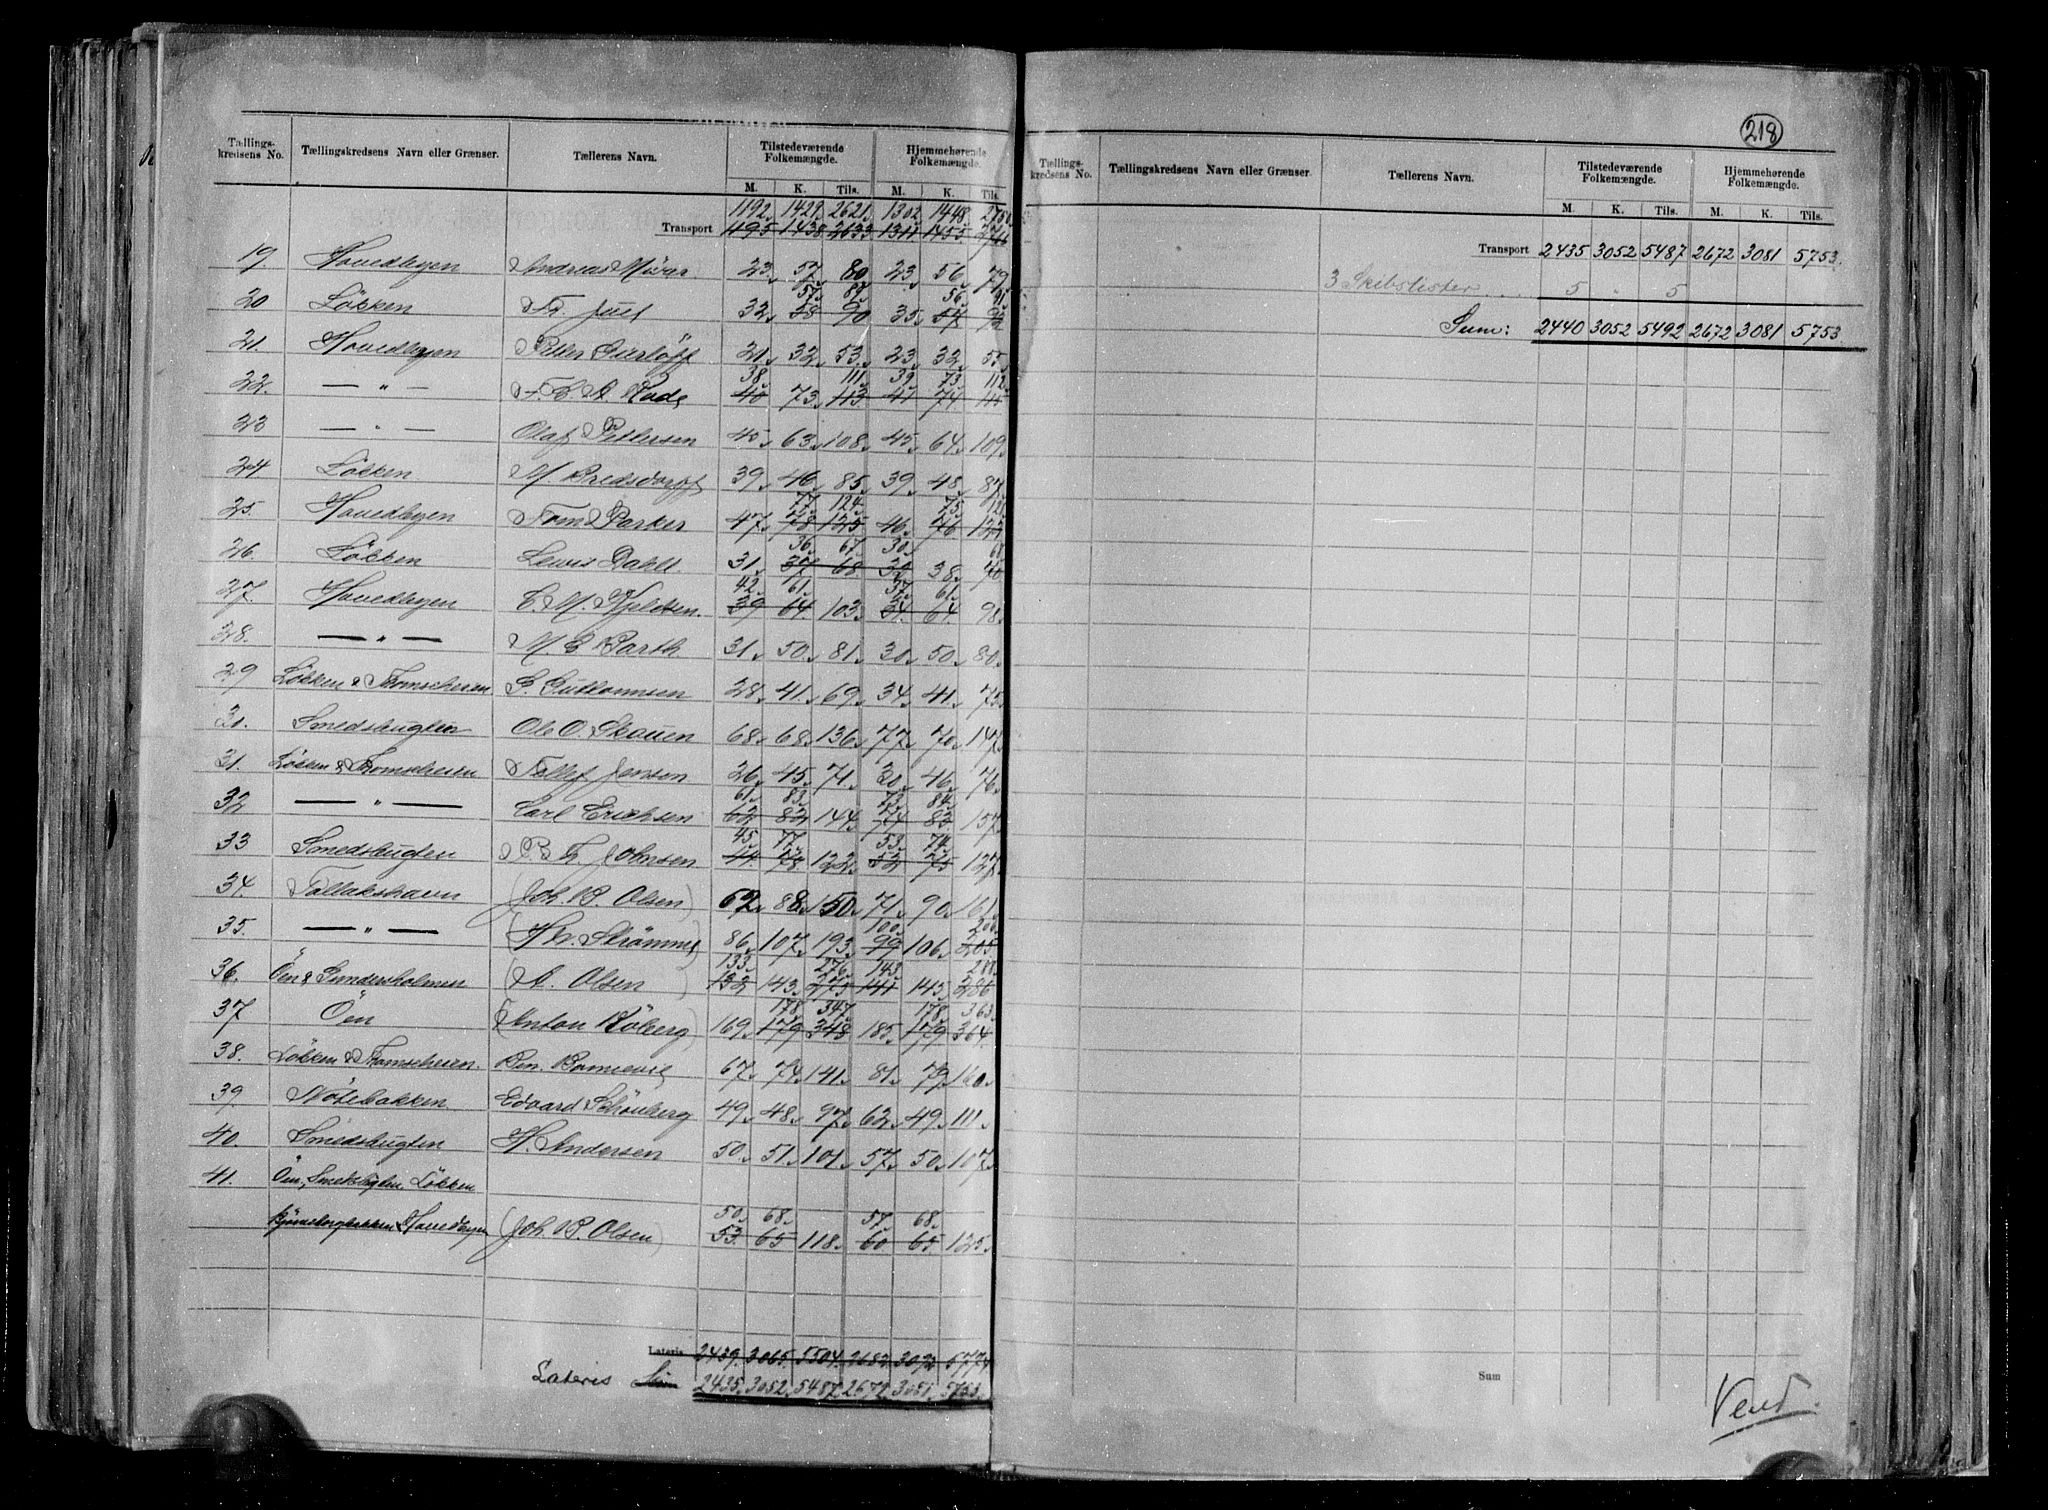 Tællings-kredsens No. Tællingskredsens Navn eller Grænser. Tællerens Navn. Tilstedeværende Folkemængde. Hjemmehørende Folkemængde.
M. K. Tils. M. K. Tils.
1192 1429 2621 1302 1448
Transport 1195 1438 2633 1311 1455 2766
19. Hovedbyen Andreas 23 57 80 23 56 79
57 89 56 91
20 Løkken Fr. Juel 32 58 90 35 57 92
21. Hovedbyen Peter 21 32 53 23 32 55
38 111 39 73 112
22. — " — Rode 40 73 113 41 74 115
23 — " — Olaf Pettersen 45 63 108 45 64 109
24. Løkken M. Bredsdorff 39 46 85 39 48 87
77 124 75 121
25. Hovedbyen Tom Parker 47 78 125 46 76 122
36 67 30 68
26. Løkken Lewis Dahll 31 37 68 32 38 70
42 61 37 61
27. Hovedbyen C. M. 39 64 103 34 64 98
28. — " — M. C. Barth 31 50 81 30 50 80
29 Løkken & Thomsheien G. Guttormsen 28 41 69 34 41 75
30. Smedsbugten Ole O. Skauen 68 68 136 77 70 147
31. Løkken & Thomsheien Tellef Jensen 26 45 71 30 46 76
61 83 73 84
32 — " — Carl Erichsen 62 82 144 74 83 157
45 77 53 74
33 Smedsbugten Johnsen 44 78 122 52 75 127
34. Tallakshavn (Joh. B. Olsen) 62 88 150 71 90 161
100 206
35. — " — 86 107 193 99 106 205
133 276 143 288
36. Øen & Gundersholmen (A. Olsen) 132 143 275 141 145 286
178 347 178 363
37 Øen (Anton Röberg) 169 179 348 185 179 364
38. Løkken & Thomsheien. 67 74 141 81 79 160
39. Nötebakken Edvard Schönberg 49 48 97 62 49 111
40. Smedsbugten H. Andersen 50 51 101 57 50 107
41. Øen, Smedsbugten, Løkken
50 68 57 68
Hovedbyen (Joh. B. Olsen) 53 65 118 60 65 125
Lateris 2439 3065 5504 2682 3092 5774
Lateris 2435 3052 5487 2672 3081 5753
218
Tællings-kredsens No. Tællingskredsens Navn eller Grænser. Tællerens Navn. Tilstedeværende Folkemængde. Hjemmehørende Folkemængde.
M. K. Tils. M. K. Tils.
Transport 2435 3052 5487 2672 3081 5753
3 Skibslister 5 " 5
Sum: 2440 3052 5492 2672 3081 5753
Sum
Vend.